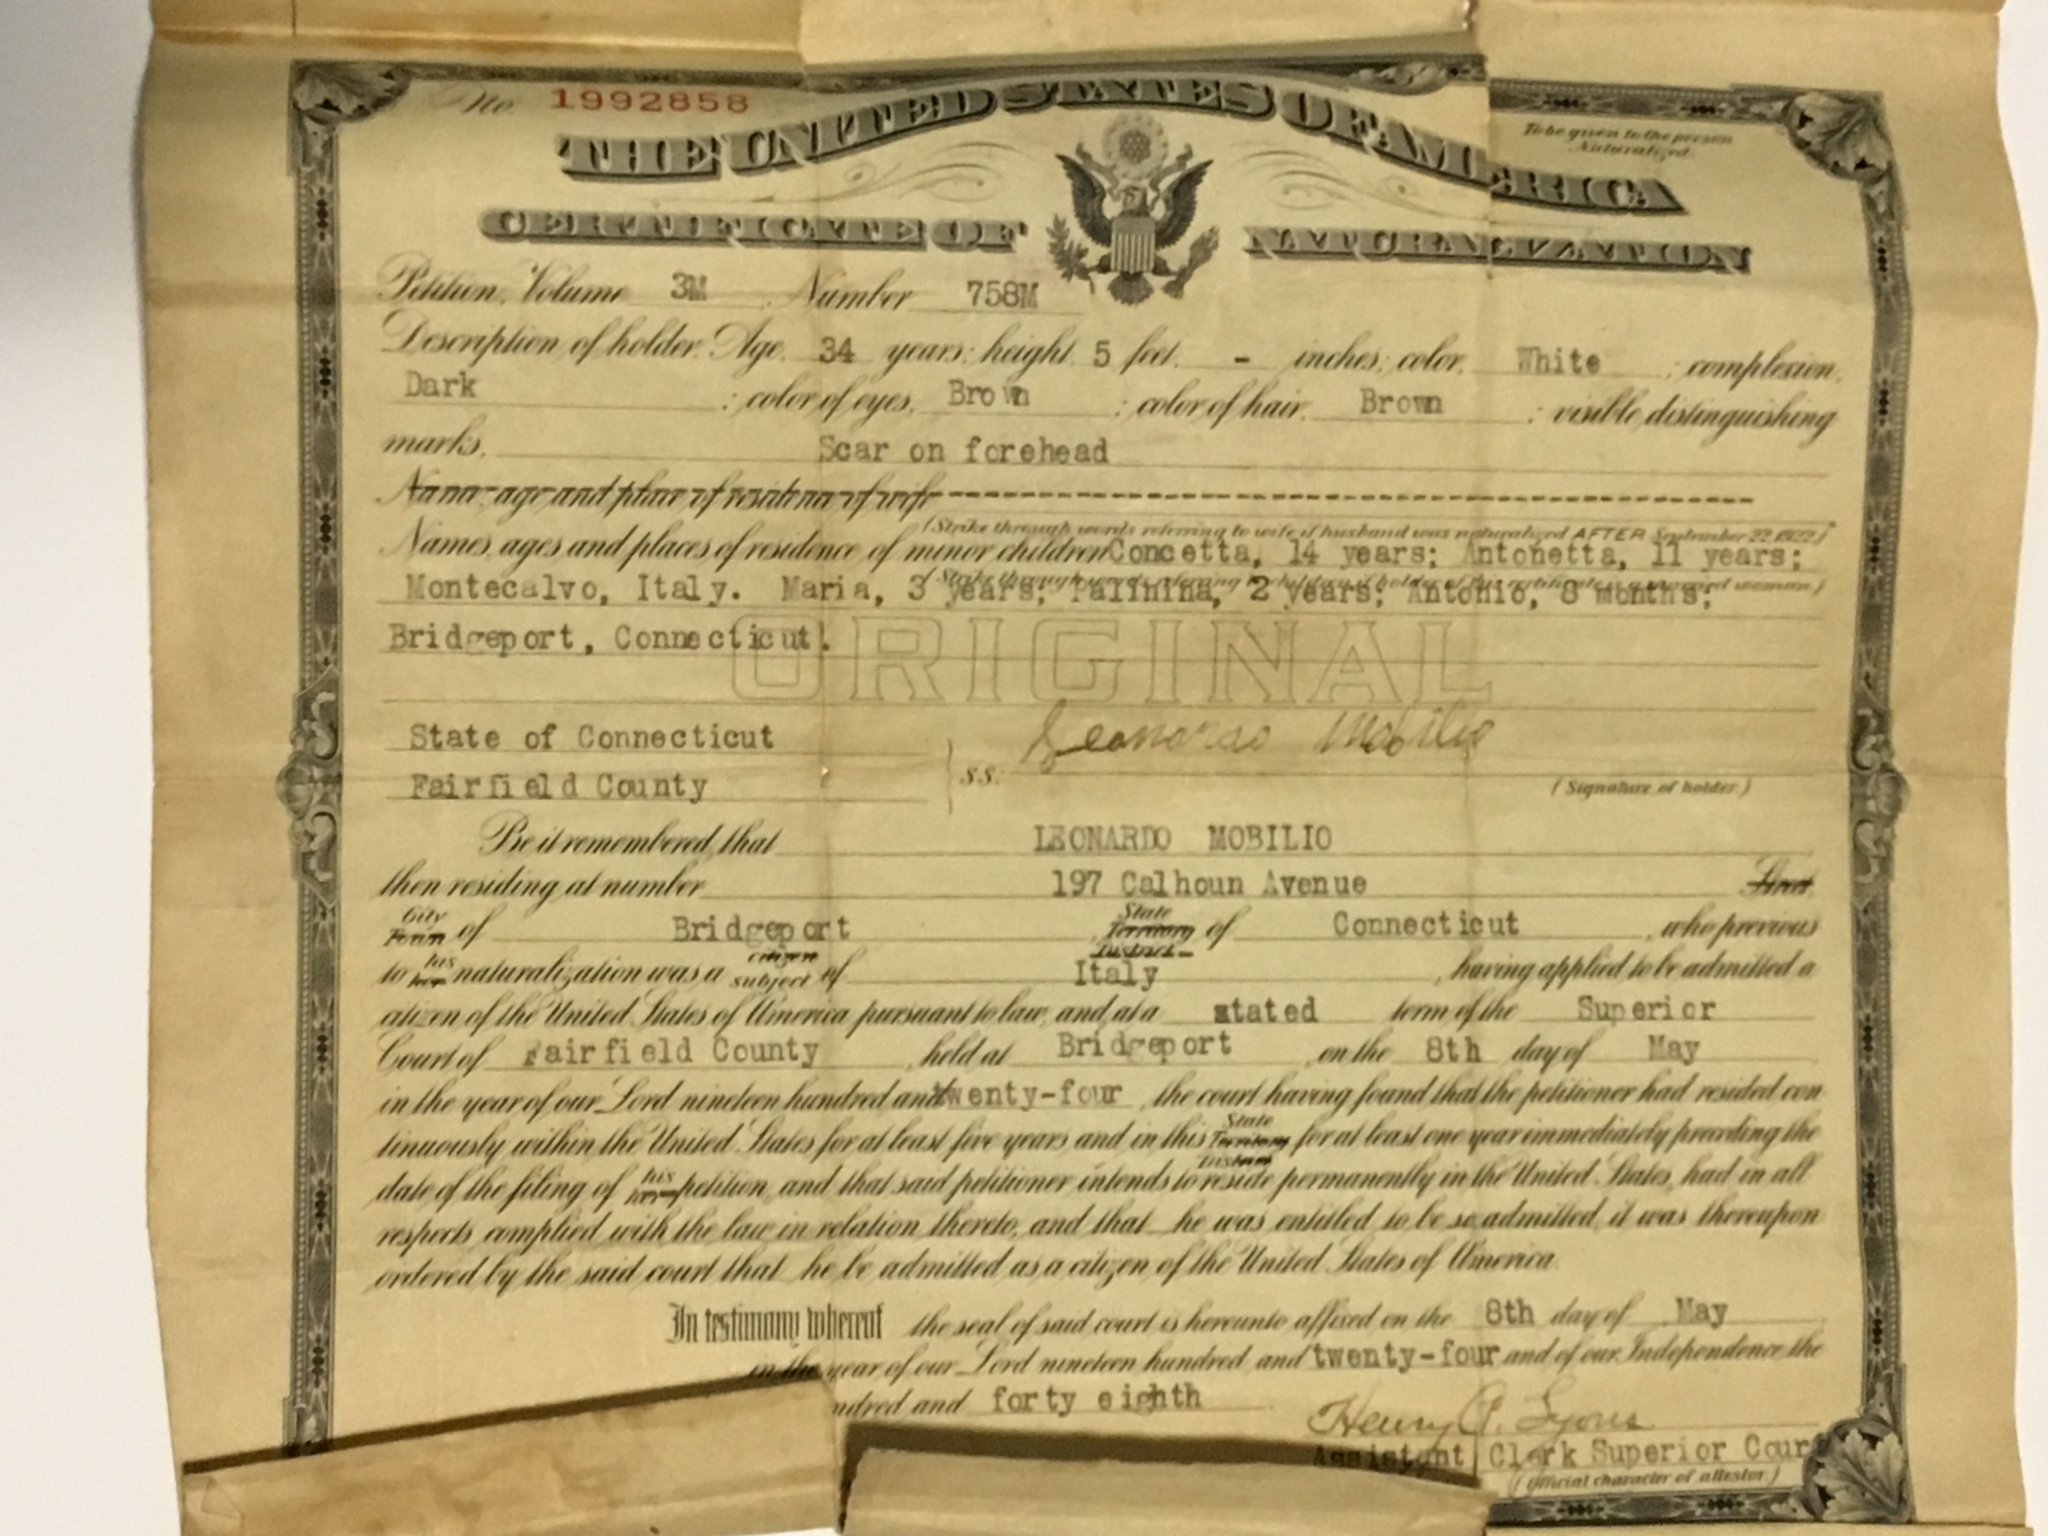 No. 1992858
To be given to the person
Naturalized.
THE UNITED STATES OF AMERICA
CERTIFICATE OF NATURALIZATION
Petition, Volume 3M, Number 758M
Description of holder: Age, 34 years; height, 5 feet, - inches; color, White; complexion,
Dark; color of eyes, Brown; color of hair, Brown; visible distinguishing
marks, Scar on forehead
Name, age and place of residence of wife
(Strike through words referring to wife if husband was naturalized AFTER September 22, 1922.)
Names, ages and places of residence of minor children Concetta, 14 years; Antonetta, 11 years;
Montecalvo, Italy. Maria, 3 years; Palinina, 2 years; Antonio, 8 months;
Bridgeport, Connecticut.
ORIGINAL
State of Connecticut
Fairfield County
s.s:
Leonardo Mobilio
(Signature of holder.)
Be it remembered, that LEONARDO MOBILIO
then residing at number 197 Calhoun Avenue Street,
City
Town of Bridgeport, State Territory District of Connecticut, who previous
to his her naturalization was a citizen subject of Italy, having applied to be admitted a
citizen of the United States of America pursuant to law, and at a stated term of the Superior
Court of Fairfield County, held at Bridgeport, on the 8th day of May
in the year of our Lord nineteen hundred and twenty-four, the court having found that the petitioner had resided con
tinuously within the United States for at least five years and in this State Territory District for at least one year immediately preceding the
date of the filing of his her petition, and that said petitioner intends to reside permanently in the United States, had in all
respects complied with the law in relation thereto, and that he was entitled to be so admitted, it was thereupon
ordered by the said court that he be admitted as a citizen of the United States of America.
In testimony whereof the seal of said court is hereunto affixed on the 8th day of May
in the year of our Lord nineteen hundred and twenty-four and of our Independence the
ndred and forty eighth
Henry P. Lyons
Assistant Clerk Superior Court
(Official character of attestor.)